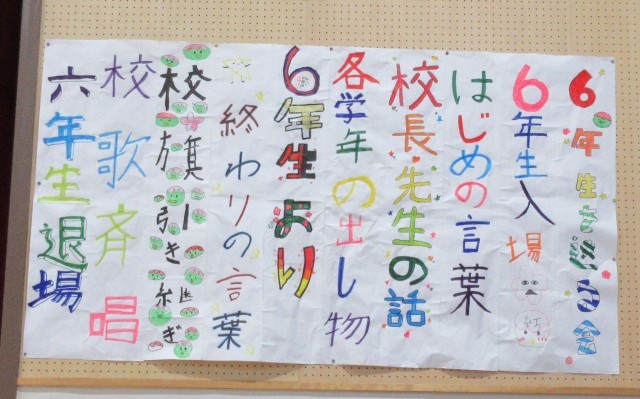 6年生を送る会
6年生入場
はじめの言葉
校長先生の話
各学年の出し物
6年生より
終わりの言葉
校旗引き継ぎ
校歌斉唱
六年生退場